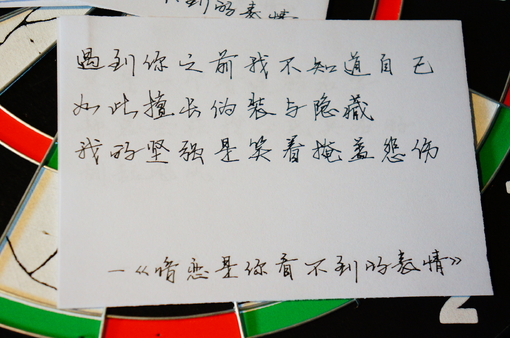 不到的表情
遇到你之前我不知道自己
如此擅长伪装与隐藏
我的坚强是笑着掩盖悲伤
—《暗恋是你看不到的表情》
2